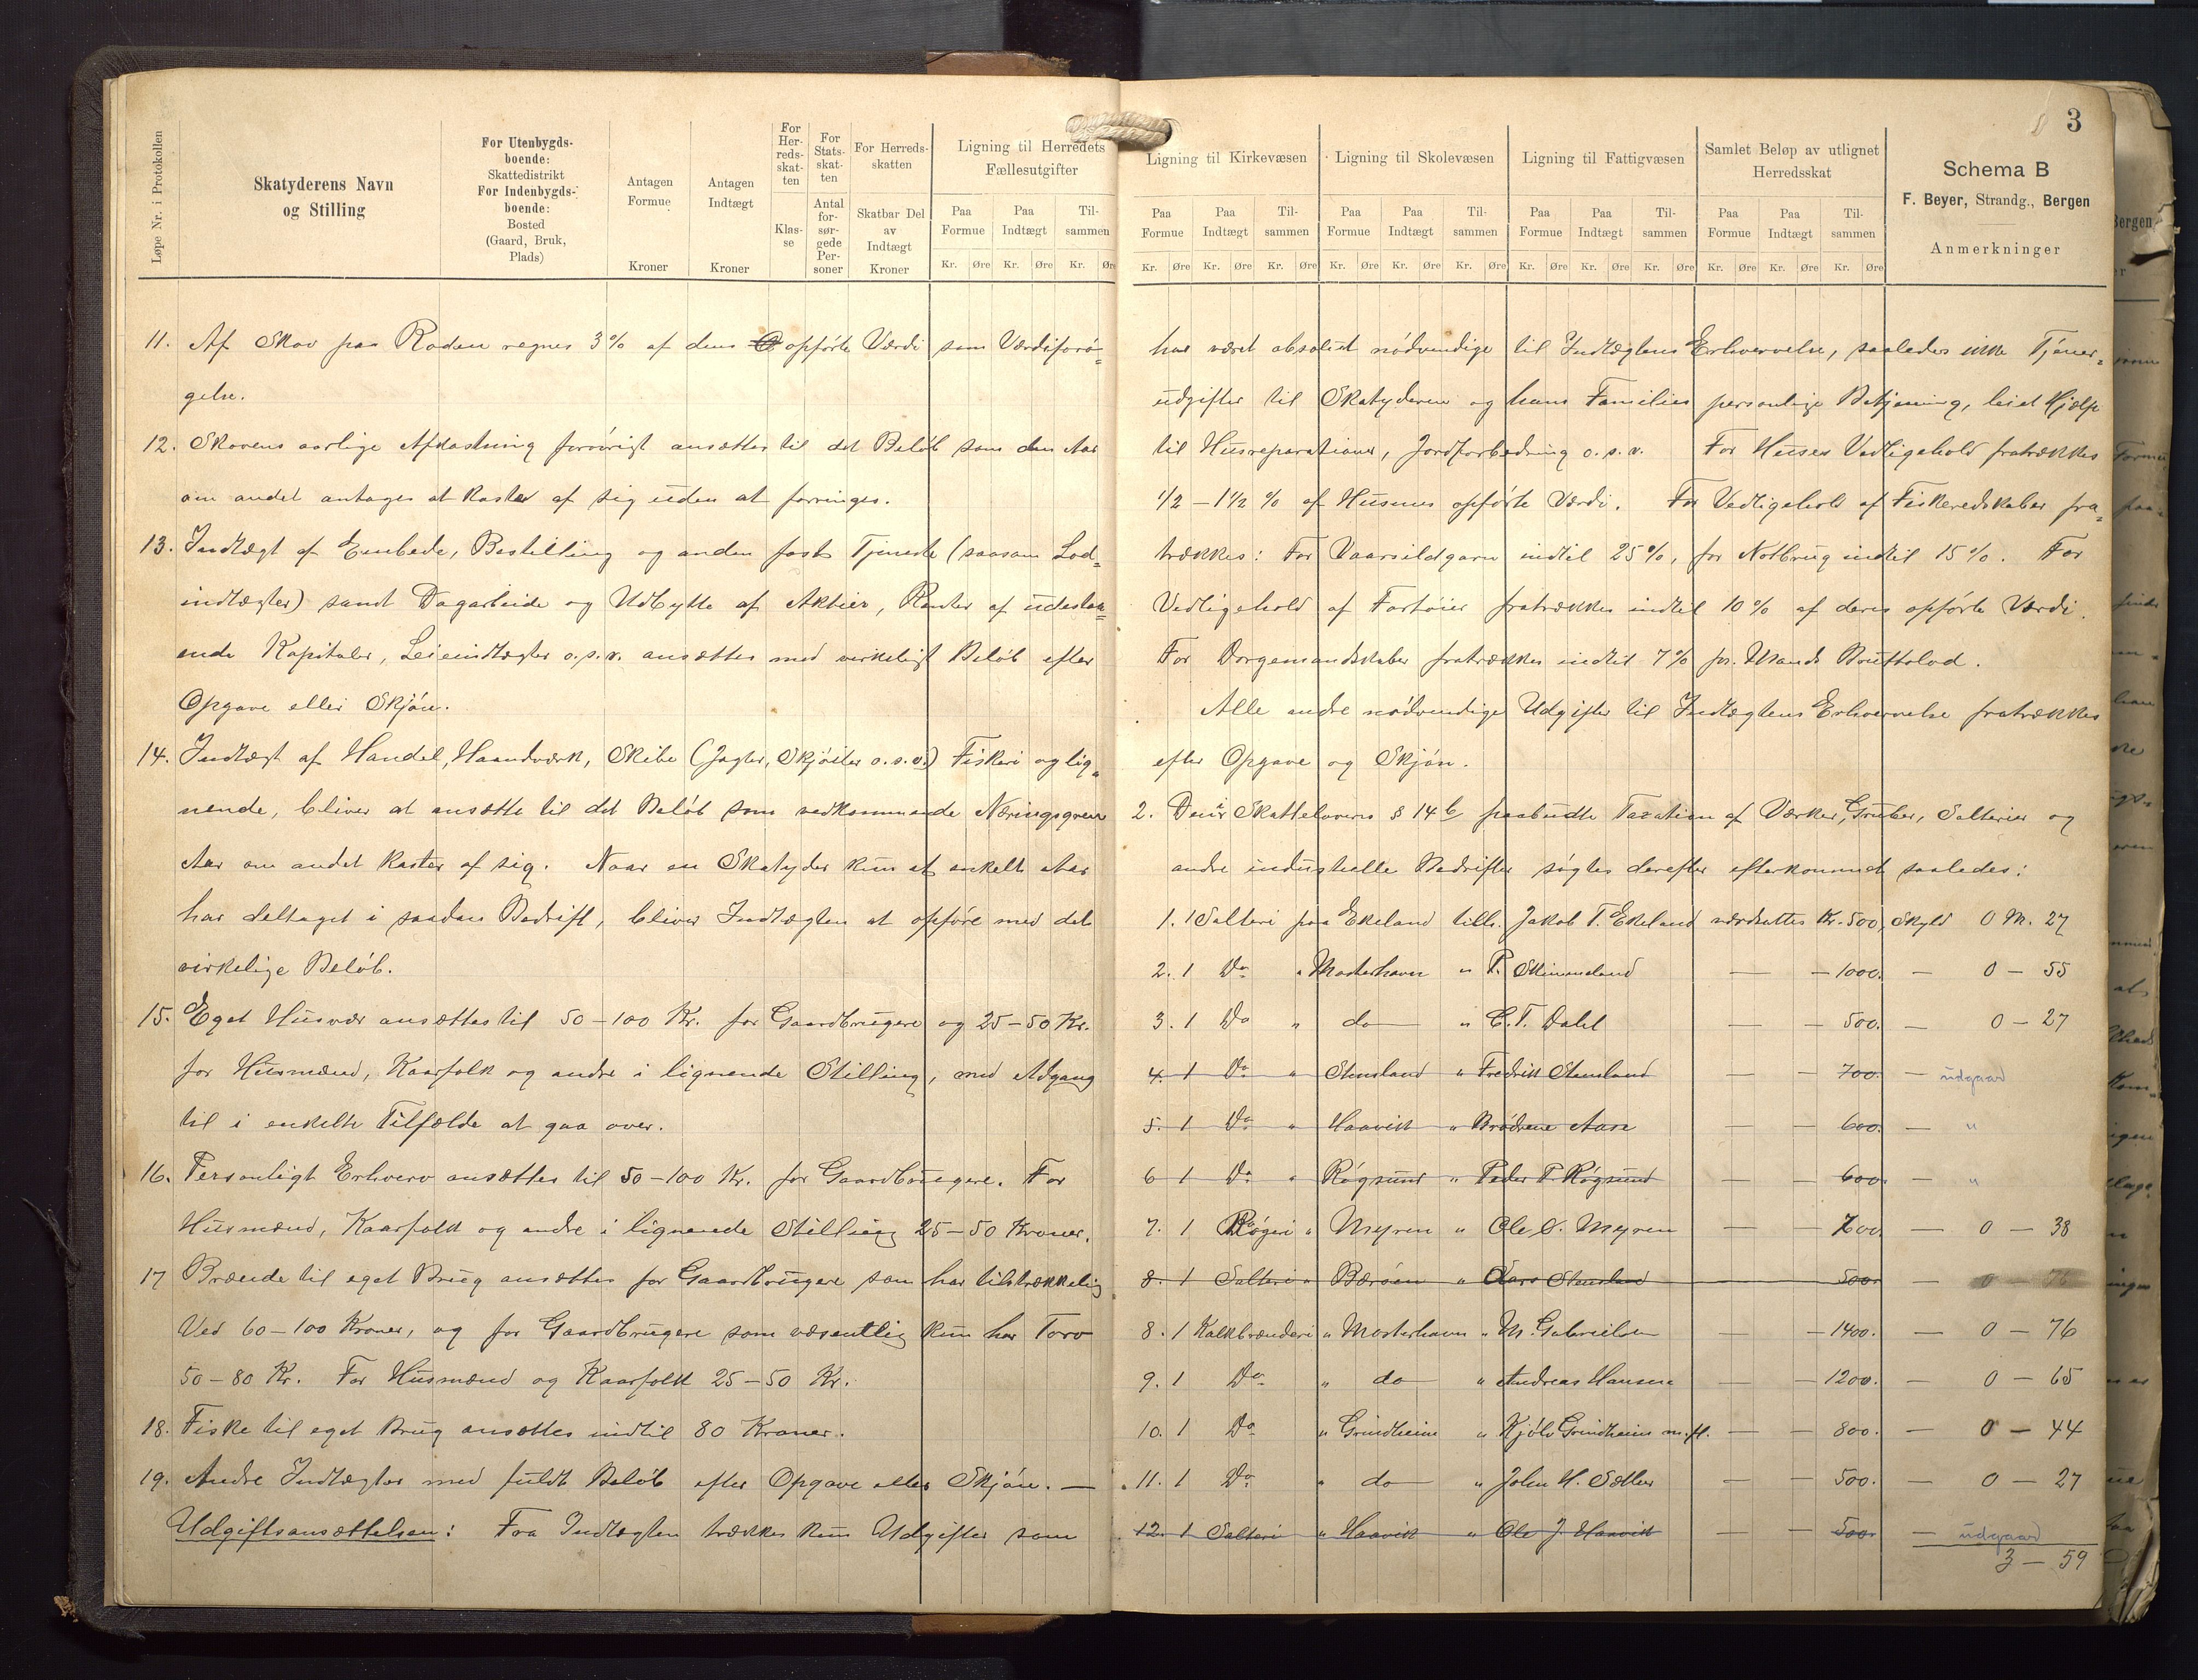 Løpe Nr. i Protokollen
Skatyderens Navn
og Stilling
For Utenbygds-
boende:
Skattedistrikt
For Indenbygds-
boende:
Bosted
(Gaard, Bruk,
Plads)
Antagen
Formue
Kroner
Antagen
Indtægt
Kroner
For
Her-
reds-
skat-
ten
Klas-
se
For
Stats-
skat-
ten
Antal
for-
sør-
gede
Per-
soner
For Herreds-
skatten
Skatbar Del
av
Indtægt
Kroner
Ligning til Herredets
Fællesutgifter
Paa Formue Paa Indtægt Til-sammen
Kr. Øre Kr. Øre Kr. Øre
11. Af Skov paa Roden regnes 3% af dens opførte Værdi som Værdiforø-
gelse.
12. Skovens aarlige Afkastning forøvrigt ansættes til det Beløb som den Aar
om andet antages at kaste af sig uden at forringes.
13. Indtægt af Embede, Bestilling og anden fast Tjeneste (saasom Lod-
indtægter) samt Dagarbeide og Udbytte af Aktier, Renter af udestaa-
ende Kapitaler, Leieindtægter o.s.v. ansættes med virkeligt Beløb efter
Opgave eller Skjøn.
14. Indtægt af Handel, Haandværk, Skibe (Jagter, Skjøiter o.s.v.) Fiskeri og lig-
nende, bliver at ansætte til det Beløb som vedkommende Næringsgren
Aar om andet kaster af sig. Naar en Skatyder kun et enkelt Aar
har deltaget i saadan Bedrift, bliver Indtægten at opføre med det
virkelige Beløb.
15. Eget Husvær ansættes til 50-100 Kr. for Gaardbrugere og 25-50 Kr.
for Husmænd, Kaarfolk og andre i lignende Stilling, med Adgang
til i enkelte Tilfælde at gaa over.
16. Personligt Erhverv ansættes til 50-100 Kr. for Gaardbrugere. For
Husmænd, Kaarfolk og andre i lignende Stilling 25-50 Kroner.
17 Brænde til eget Brug ansættes for Gaardbrugere som har tilstrækkelig
Ved 60-100 Kroner, og for Gaardbrugere som væsentlig kun har Torv
50-80 Kr. For Husmænd og Kaarfolk 25-50 Kr.
18. Fiske til eget Brug ansættes indtil 80 Kroner.
19. Andre Indtægter med fuldt Beløb efter Opgave eller Skjøn. —
Udgiftsansættelsen: Fra Indtægten trækkes kun Udgifter som
3
Ligning til Kirkevæsen Ligning til Skolevæsen Ligning til Fattigvæsen
Samlet Beløp av utlignet
Herredsskat
Paa Formue Paa Indtægt Til-sammen Paa Formue Paa Indtægt Til-sammen Paa Formue Paa Indtægt Til-sammen Paa Formue Paa Indtægt Til-sammen
Kr. Øre Kr. Øre Kr. Øre Kr. Øre Kr. Øre Kr. Øre Kr. Øre Kr. Øre Kr. Øre Kr. Øre Kr. Øre Kr. Øre
Schema B
F. Beyer, Strandg., Bergen
Anmerkninger
har været absolut nødvendige til Indtægtens Erhvervelse, saaledes ikke Tjener-
udgifter til Skatyderen og hans Families personlige Betjening, leiet Hjælp
til Husreparationer, Jordforbedring o.s.v. For Huses Vedligehold fratrækkes
1/2 - 1 1/2 % af Husenes opførte Værdi. For Vedligehold af Fiskeredskaber fra-
trækkes: For Vaarsildgarn indtil 25%, for Notbrug indtil 15%. For
Vedligehold af Fartøier fratrækkes indtil 10% af deres opførte Værdi.
For Dorgemandskaber fratrækkes indtil 7% pr. Mands Bruttolod.
Alle andre nødvendige Udgifter til Indtægtens Erhvervelse fratrækkes
efter Opgave og Skjøn.
2. Den i Skattelovens § 14 b paabudte Taxation af Værker, Gruber, Salterier og
andre industrielle Bedrifter søgtes derefter efterkommet saaledes:
1. 1 Salteri paa Ekeland tilh. Jakob T. Ekeland værdsattes Kr. 500, Skyld 0 M. 27
2. 1 Do " Mosterhavn " P. Skimmeland — — 1000. — 0 — 55
3. 1 Do " do " C. T. Dahl — — 500. — 0 — 27
4. 1 Do " Stensland " Fredrik Stensland — — 700. — udgaar
5. 1 Do " Haavik " Brødrene Aase — — 600. — "
6 1 Do " Røgsund " Peder P. Røgsund — — 600. — "
7. 1 Røgeri " Myren " Ole S. Myren — — 700 — 0 — 38
8. 1 Salteri " Børøen " Lars Stensland — 500. — 0 — 76
8. 1 Kalkbrænderi " Mosterhavn " M. Gabrielsen — — 1400. — 0 — 76
9. 1 Do " do " Andreas Hansen — — 1200. — 0 — 65
10. 1 Do " Grindheim " Kjølv Grindheim m.fl. — — 800. — 0 — 44
11. 1 Do " do " John H. Sætter — — 500. — 0 — 27
12. 1 Salteri " Haavik " Ole J. Haavik — — 500. — udgaar
3 — 59